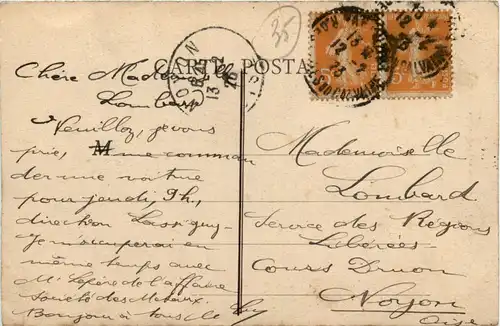 35
CARTE POSTALE
NOYON
13
Chère Mademoiselle
Lombard
Veuillez, je vous
prie, me comman
der une voiture
pour jeudi, 9h,
direction Lassigny.
Je m'occuperai en
même temps avec
Mr Lepère de l'affaire
Société des Métaux.
Bonjour à tous
Mademoiselle
Lombard
Service des Régions
Libérées
Cours Druon
Noyon
Oise